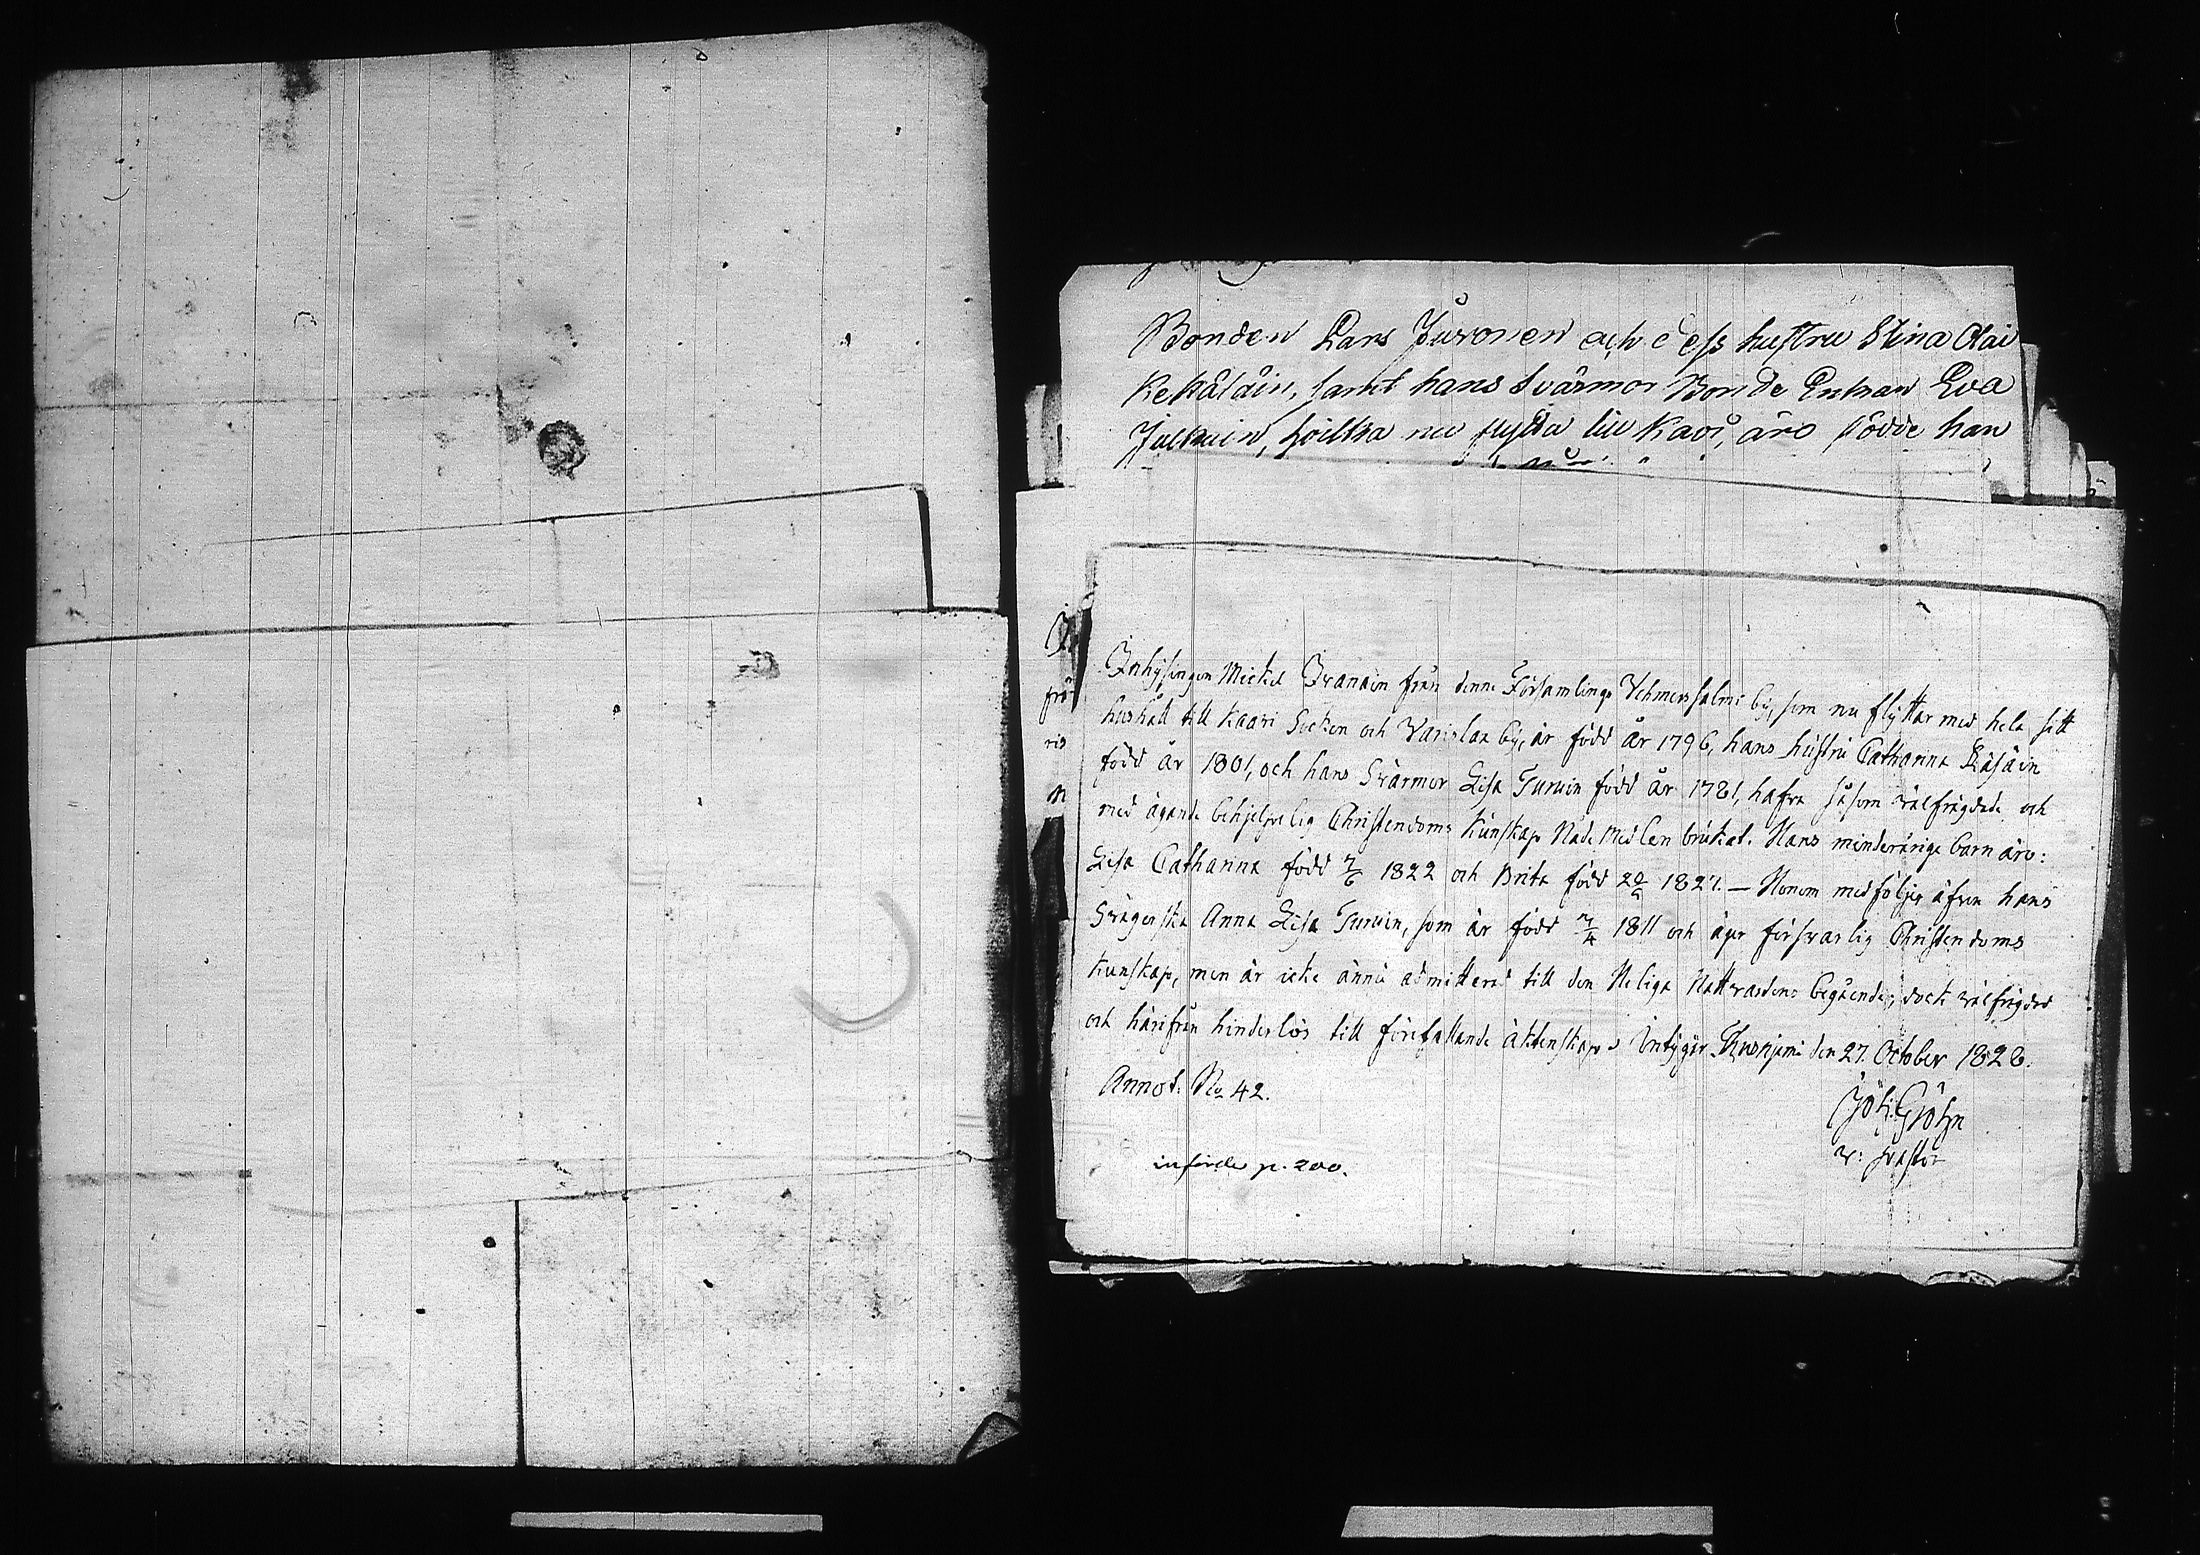 Bonden Lars Juvonen och dess hustru Stina Cai
Kekäläin, samt hans Svärmor Bonde Enkan Eva
hvilka nu flytta till Kavi, äro födde han
Inhysingen Mickel Ivanain från denne Församlings Vehmersalmi by, som nu flyttar med hela sitt
hushåll till Kaavi Socken och Varislax by, är född år 1796, hans hustru Catharina Räsäin
född år 1801, och hans Svärmor Lisa Turuin född år 1781, hafva såsom välfrägdade och
med ägande behjelpelig Christendoms Kunskap Nådemedlen brukat. Hans minderårige barn äro:
Lisa Catharina född 7/6 1822 och Brita född 20/6 1827. — Honom medföljer äfven hans
Svägerska Anna Lisa Turuin, som är född 7/4 1811 och äger försvarlig Christendoms
Kunskap, men är icke ännu admitterad till den Heliga Nattvardens begående, dock välfrägdad
och härifrån hinderlös till förefallande äktenskap. Intygar Kuopijemi den 27. October 1828.
Annot: No 42.
Joh: Gröhn
v: pastor
införde p. 200.